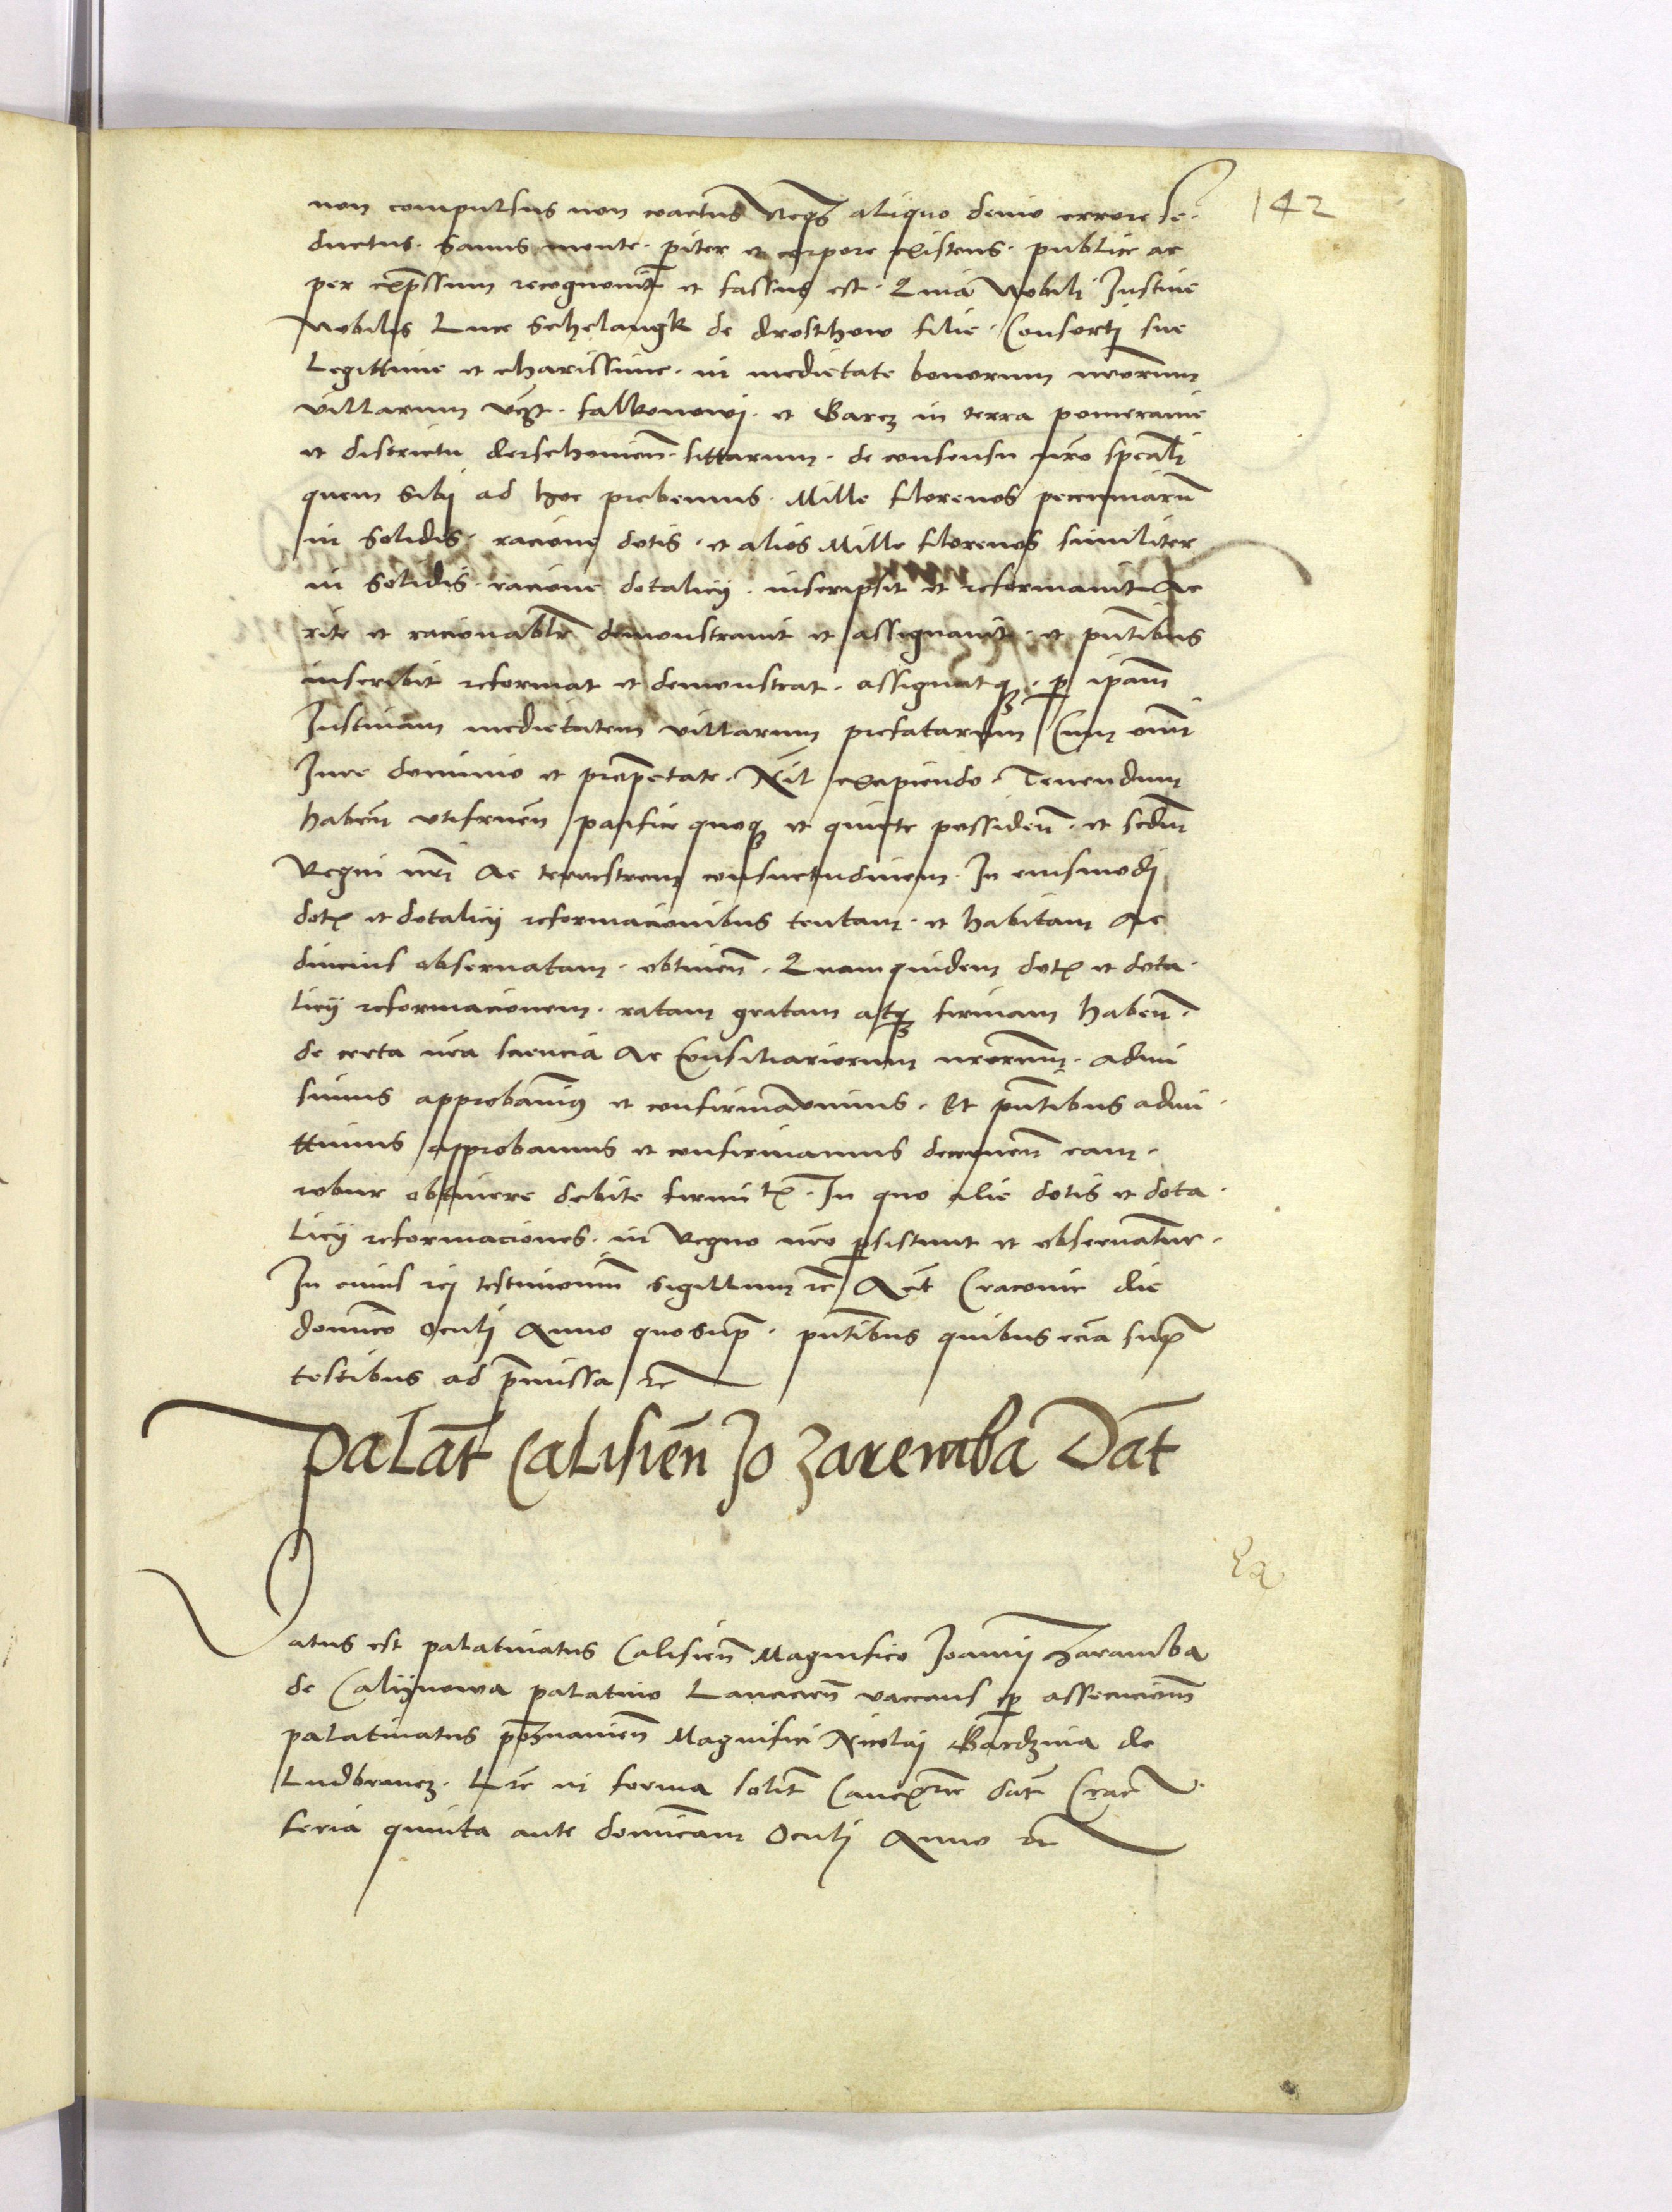 142
non compulsus non coactus Neqȝ aliquo devio errore se-
ductus. Sanus mente. piter et corpore existens. publice ac
per exp̄ssum recognovit et fassus est. Quia Nobili Iustine
Nobilis Luce Schelangk de drosthow filie. Consorti sue
Legittime et charissime. in medietate bonorum nr̄orum
villarum vcȝt. falkonowi. et Garcz in terra pomeranie
et districtu derschovien̄. sittarum. de consensu nr̄o speāli
quem sibi ad hoc prebemus. Mille florenos peccuniarū
in solidis. racione dotis. et alios Mille florenos similiter
in solidis. racione dotalicij. inscripsit et reformavit Ac
rite et racionabl̄r demonstravit et assignavit. et pn̄tibus
inscribit reformat et demonstrat. assignatqȝ. p ip̄am
Iustinam medietatem villarum prefatarum Cum om̄i
Iure dominio et propetate. Nil excipiendo. Tenendum
haben̄ utifruen̄ pacifice quoqȝ et quiete possiden̄. et scdm̄
Regni nr̄i Ac terrestrem consuetudinem. In eiusmodi
dotꝭ et dotalicij reformacionibus tentam. et habitam Ac
diucius observatam. obtinen̄. Quamquidem dotꝭ et dota-
licij reformacionem. ratam gratam atqȝ firmam haben̄.
de certa nr̄a sciencia Ac Consiliariorum nr̄orum. admi
simus approbavimꝯ et confirmavimus. Et pn̄tibus admi-
ttimus approbamus et confirmamus decernen̄ eam.
robur obtinere debite firmitꝭ. In quo alie dotis et dota-
licij reformaciones. in Regno nr̄o psistunt et observantur.
In cuius rei testimoniū sigillum rc̄ Act̄ Cracovie die
dominico Oculi Anno quo sup̄. pn̄tibus quibus eciā sup̄
testibus ad p̄missa rc̄
Palat̄ Calisien̄ Jo Zaremba Dat̄
Ex
Datus est palatinatus Calisien̄ Magnifico Joanni Zaramba
de Calijnowa palatino Lancicien̄ vaccans p assecucionem
palatinatus poznanien̄ Magnifici Nicolai Gardzina de
Ludbrancz. Lr̄e in forma solit̄ Cancꝭrie dat̄ Crac̄
feria quinta ante dominicam Oculi Anno rc̄